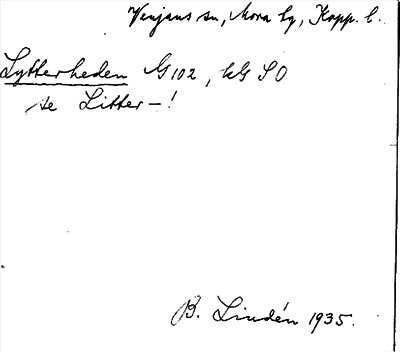 Venjans sn, Mora tg, Kopp. l.
Lytterheden G102, kG SO
se Litter-!
B. Lindén 1935.